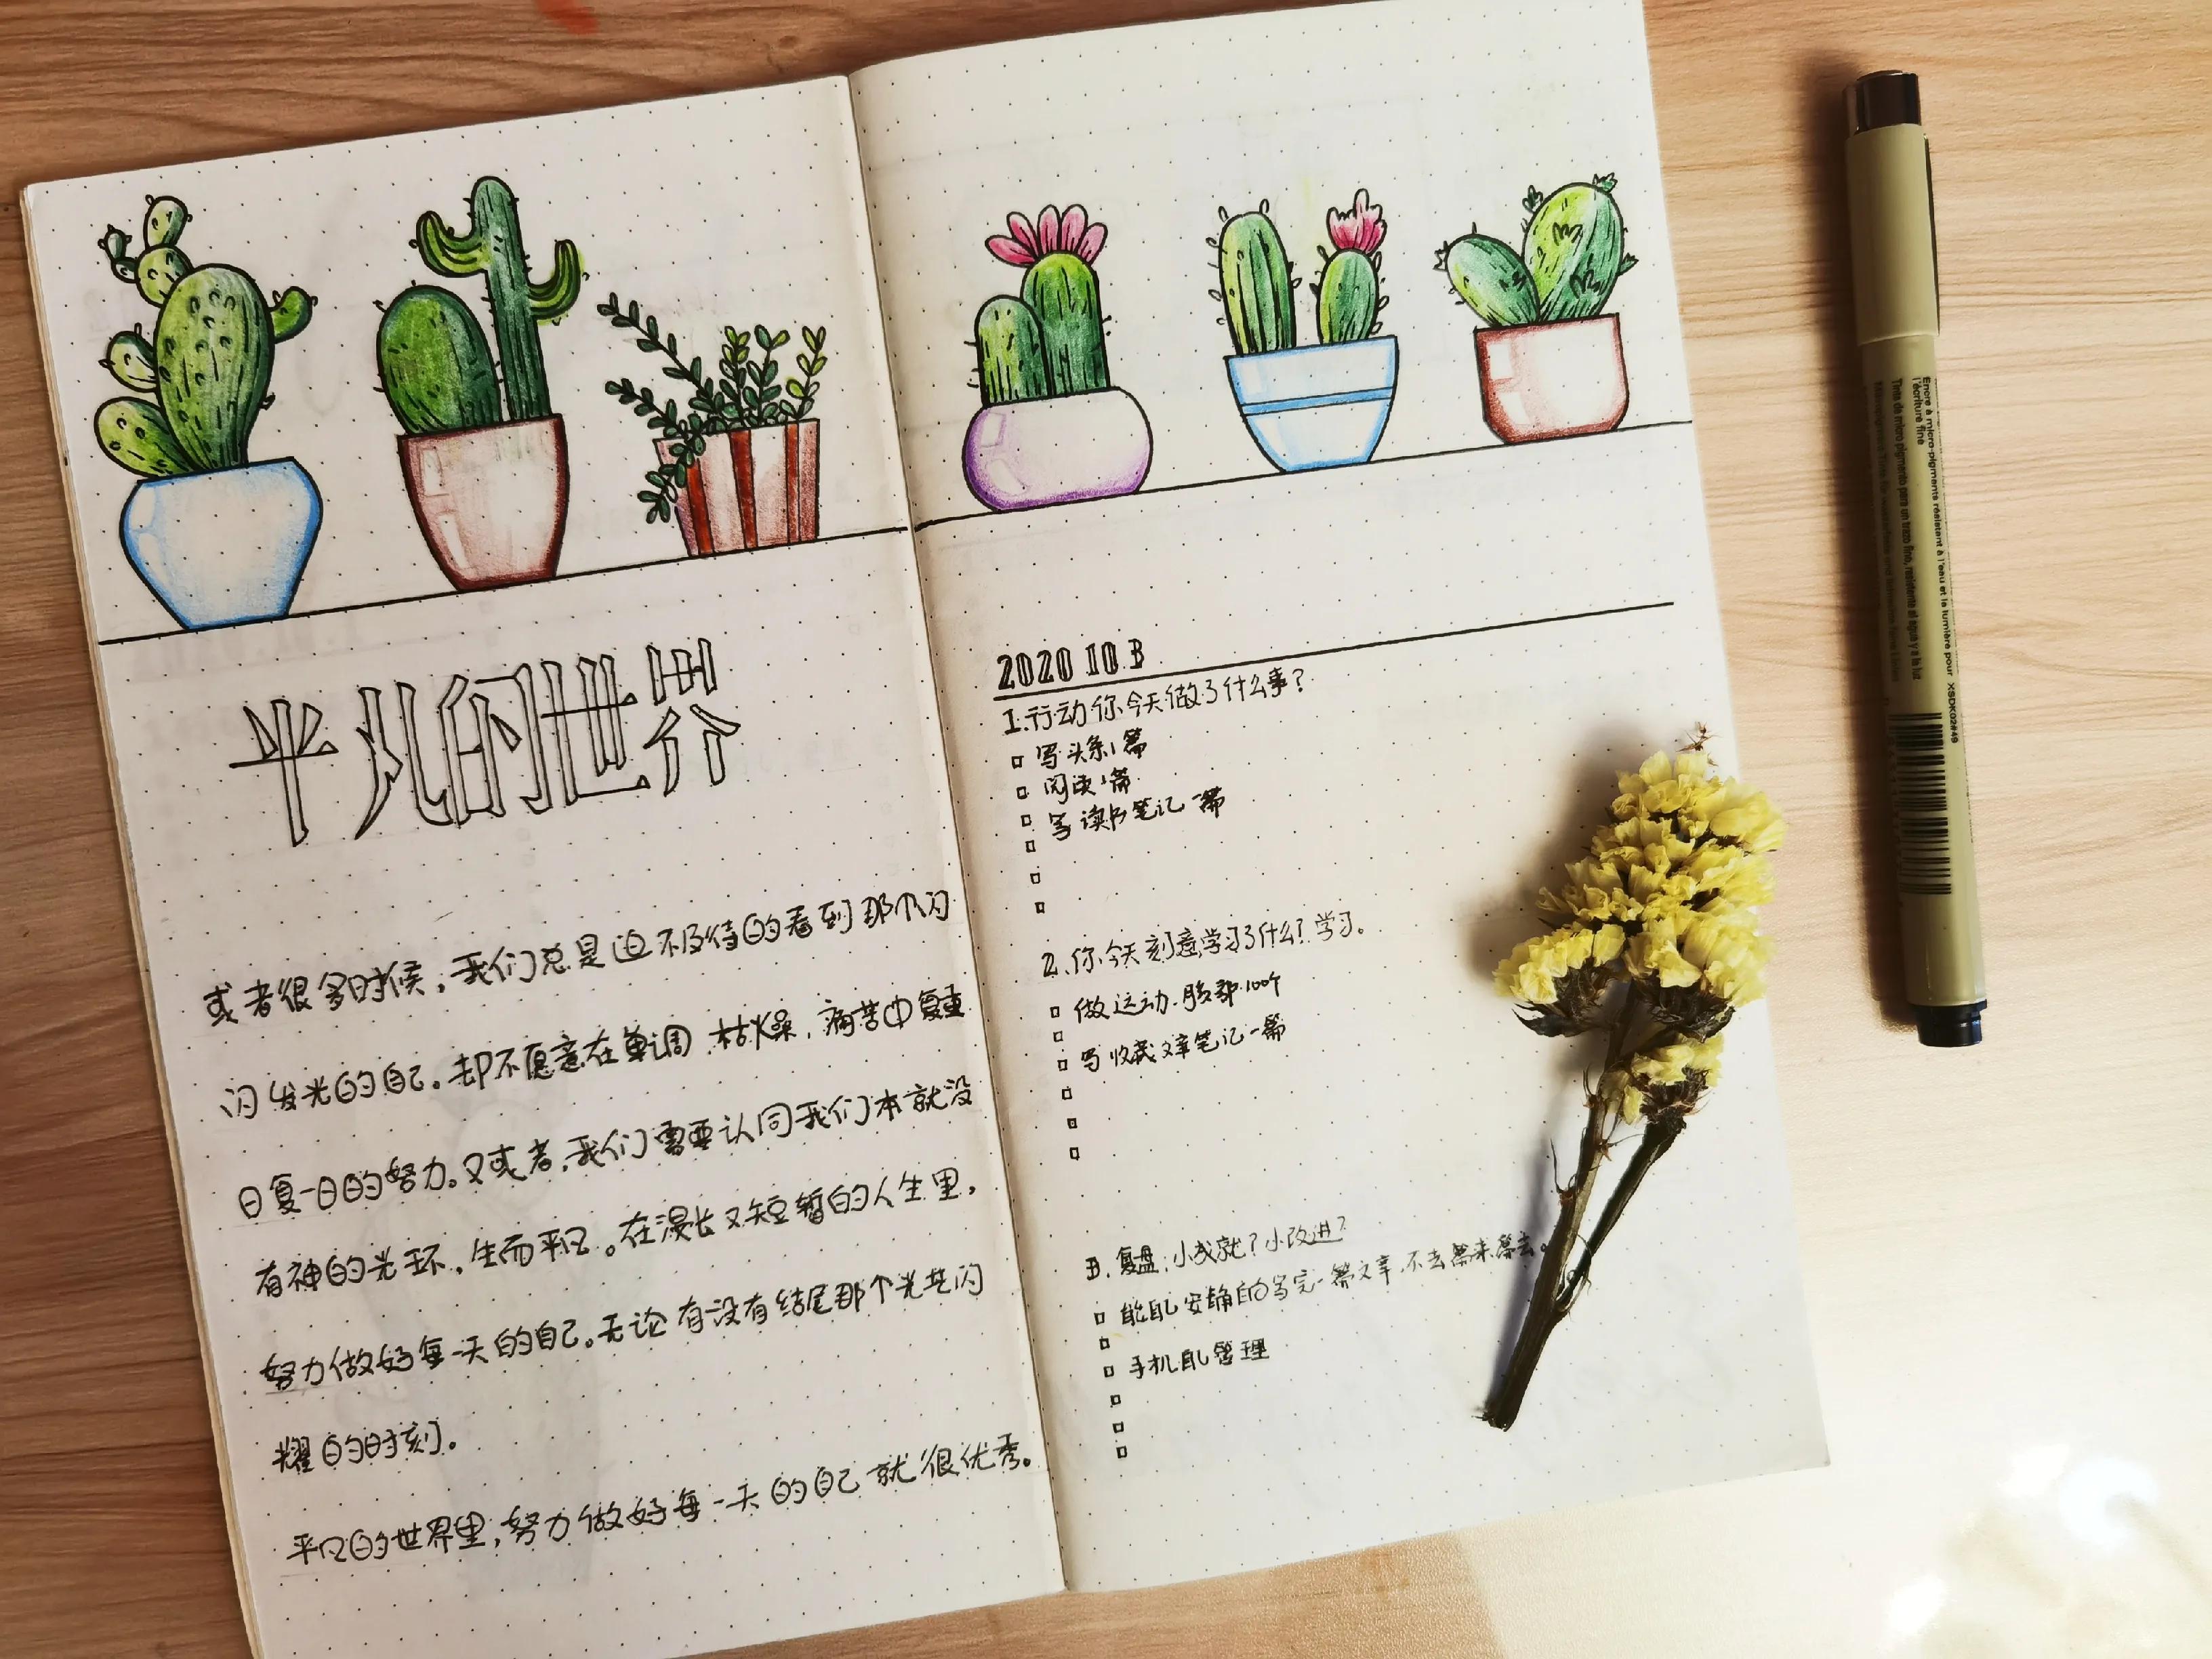 平凡的世界
或者很多时候，我们总是迫不及待的看到那个闪
闪发光的自己。却不愿意在单调、枯燥、痛苦中复重
日复一日的努力。又或者，我们需要认同我们本就没
有神的光环，生而平凡。在漫长又短暂的人生里，
努力做好每一天的自己。无论有没有结尾那个光芒闪
耀的时刻。
平凡的世界里，努力做好每一天的自己就很优秀。
2020 10 3
1.行动你今天做了什么事？
写头条1篇
阅读1篇
写读书笔记一篇
2.你今天刻意学习了什么？学习。
做运动.腹部.100个
写收藏文章笔记一篇
3.复盘：小成就？小改进？
能自己安静的写完一篇文章，不去
手机自己管理
Encre à micro-pigments résistant à l'eau et la lumière pour
l'écriture fine
Tinta de micro pigmento para un trazo fino, resistente al agua y a la luz
XSDK02#49